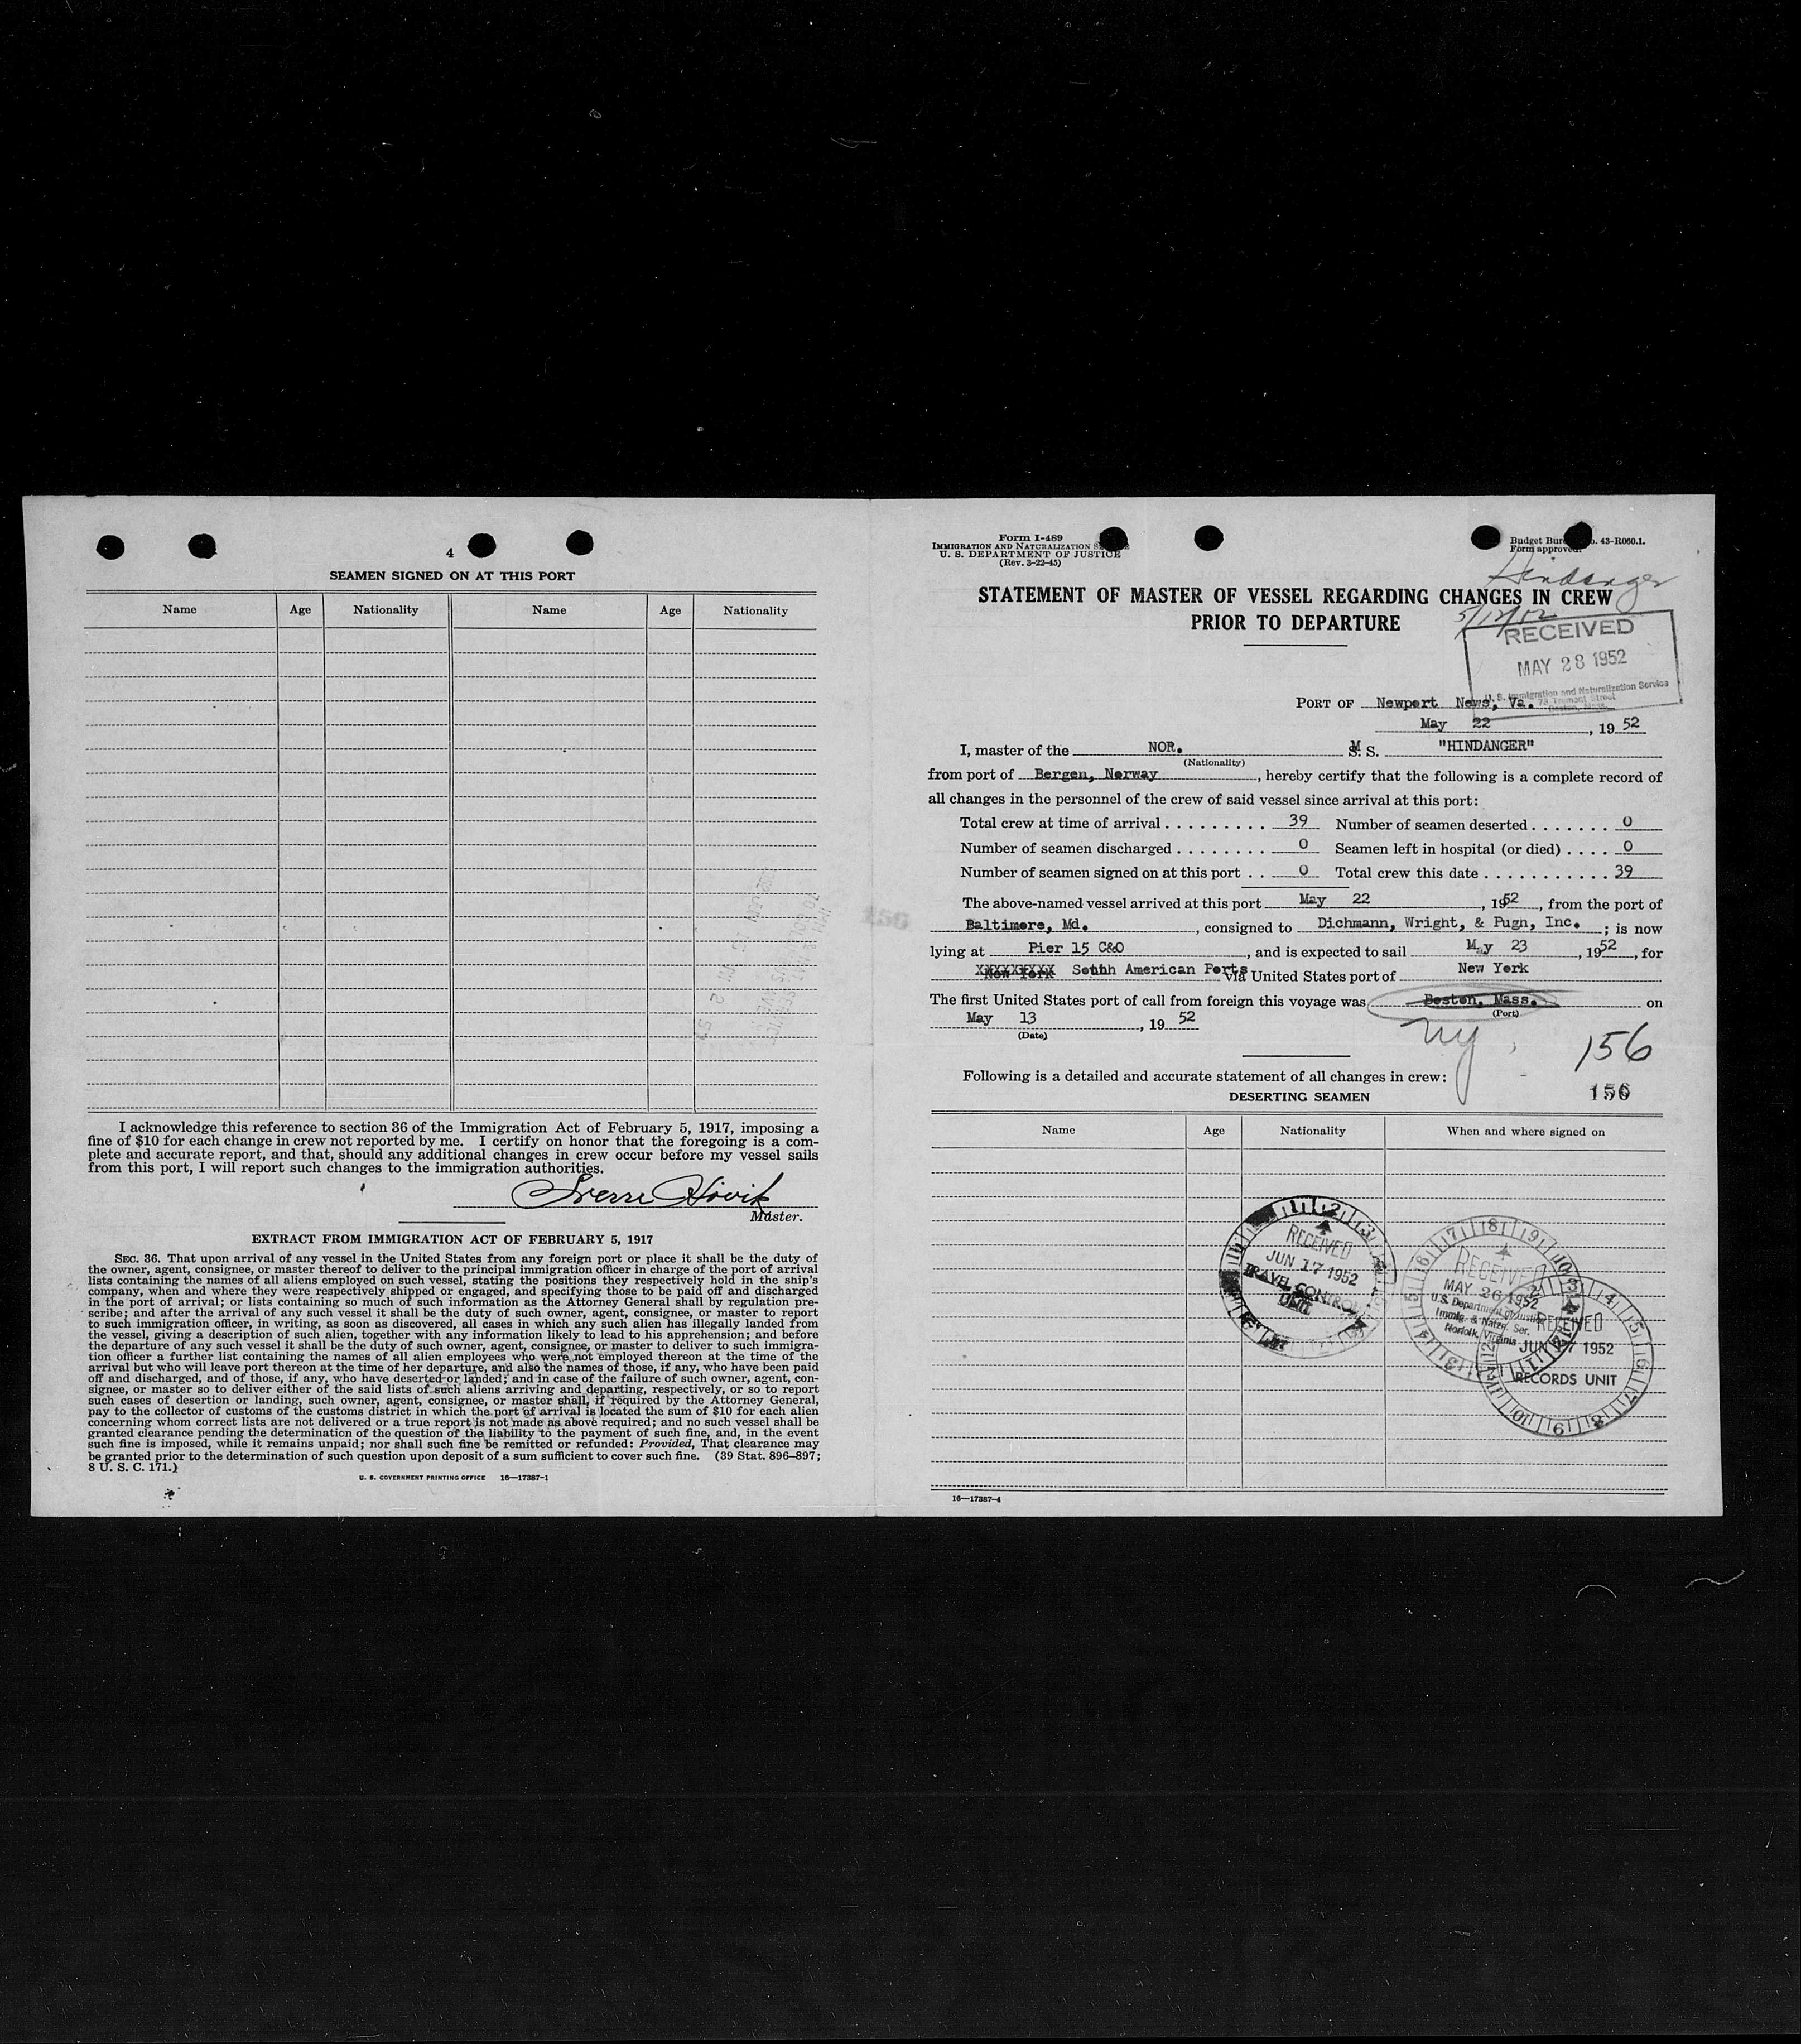 4
SEAMEN SIGNED ON AT THIS PORT
Name Age Nationality Name Age Nationality
I acknowledge this reference to section 36 of the Immigration Act of February 5, 1917, imposing a
fine of $10 for each change in crew not reported by me. I certify on honor that the foregoing is a com-
plete and accurate report, and that, should any additional changes in crew occur before my vessel sails
from this port, I will report such changes to the immigration authorities.
Sverre Hövik
Master.
EXTRACT FROM IMMIGRATION ACT OF FEBRUARY 5, 1917
SEC. 36. That upon arrival of any vessel in the United States from any foreign port or place it shall be the duty of
the owner, agent, consignee, or master thereof to deliver to the principal immigration officer in charge of the port of arrival
lists containing the names of all aliens employed on such vessel, stating the positions they respectively hold in the ship's
company, when and where they were respectively shipped or engaged, and specifying those to be paid off and discharged
in the port of arrival; or lists containing so much of such information as the Attorney General shall by regulation pre-
scribe; and after the arrival of any such vessel it shall be the duty of such owner, agent, consignee, or master to report
to such immigration officer, in writing, as soon as discovered, all cases in which any such alien has illegally landed from
the vessel, giving a description of such alien, together with any information likely to lead to his apprehension; and before
the departure of any such vessel it shall be the duty of such owner, agent, consignee, or master to deliver to such immigra-
tion officer a further list containing the names of all alien employees who were not employed thereon at the time of the
arrival but who will leave port thereon at the time of her departure, and also the names of those, if any, who have been paid
off and discharged, and of those, if any, who have deserted or landed; and in case of the failure of such owner, agent, con-
signee, or master so to deliver either of the said lists of such aliens arriving and departing, respectively, or so to report
such cases of desertion or landing, such owner, agent, consignee, or master shall, if required by the Attorney General,
pay to the collector of customs of the customs district in which the port of arrival is located the sum of $10 for each alien
concerning whom correct lists are not delivered or a true report is not made as above required; and no such vessel shall be
granted clearance pending the determination of the question of the liability to the payment of such fine, and, in the event
such fine is imposed, while it remains unpaid; nor shall such fine be remitted or refunded: Provided, That clearance may
be granted prior to the determination of such question upon deposit of a sum sufficient to cover such fine. (39 Stat. 896-897;
8 U. S. C. 171.)
U. S. GOVERNMENT PRINTING OFFICE 16—17387-1
Form I-489
IMMIGRATION AND NATURALIZATION
U. S. DEPARTMENT OF JUSTICE
(Rev. 3-22-45)
Budget Bur o. 43-R060.1.
Form approved.
Hindanger
STATEMENT OF MASTER OF VESSEL REGARDING CHANGES IN CREW
PRIOR TO DEPARTURE
5/12/52
RECEIVED
MAY 28 1952
U. S. Immigration and Naturalization Service
73 Tremont Street
Boston, Mass.
PORT OF Newport News, Va.
May 22, 1952
I, master of the NOR. M S. "HINDANGER"
(Nationality)
from port of Bergen, Norway, hereby certify that the following is a complete record of
all changes in the personnel of the crew of said vessel since arrival at this port:
Total crew at time of arrival . . . . . . . . . . 39 Number of seamen deserted . . . . . . . 0
Number of seamen discharged . . . . . . . . 0 Seamen left in hospital (or died) . . . . 0
Number of seamen signed on at this port . . 0 Total crew this date . . . . . . . . . . . 39
The above-named vessel arrived at this port May 22, 1952, from the port of
Baltimore, Md., consigned to Dichmann, Wright, & Pugn, Inc.; is now
lying at Pier 15 C&O, and is expected to sail May 23, 1952, for
New York South American Ports via United States port of New York
The first United States port of call from foreign this voyage was Boston, Mass. on
(Port)
May 13, 1952
(Date)
NY
156
Following is a detailed and accurate statement of all changes in crew:
156
DESERTING SEAMEN
Name Age Nationality When and where signed on
RECEIVED
JUN 17 1952
TRAVEL CONTROL
UNIT
RECEIVED
MAY 26 1952
U.S. Department of Justice
Immig. & Natzn. Ser.
Norfolk, Virginia
RECEIVED
JUN 17 1952
RECORDS UNIT
16—17387-4